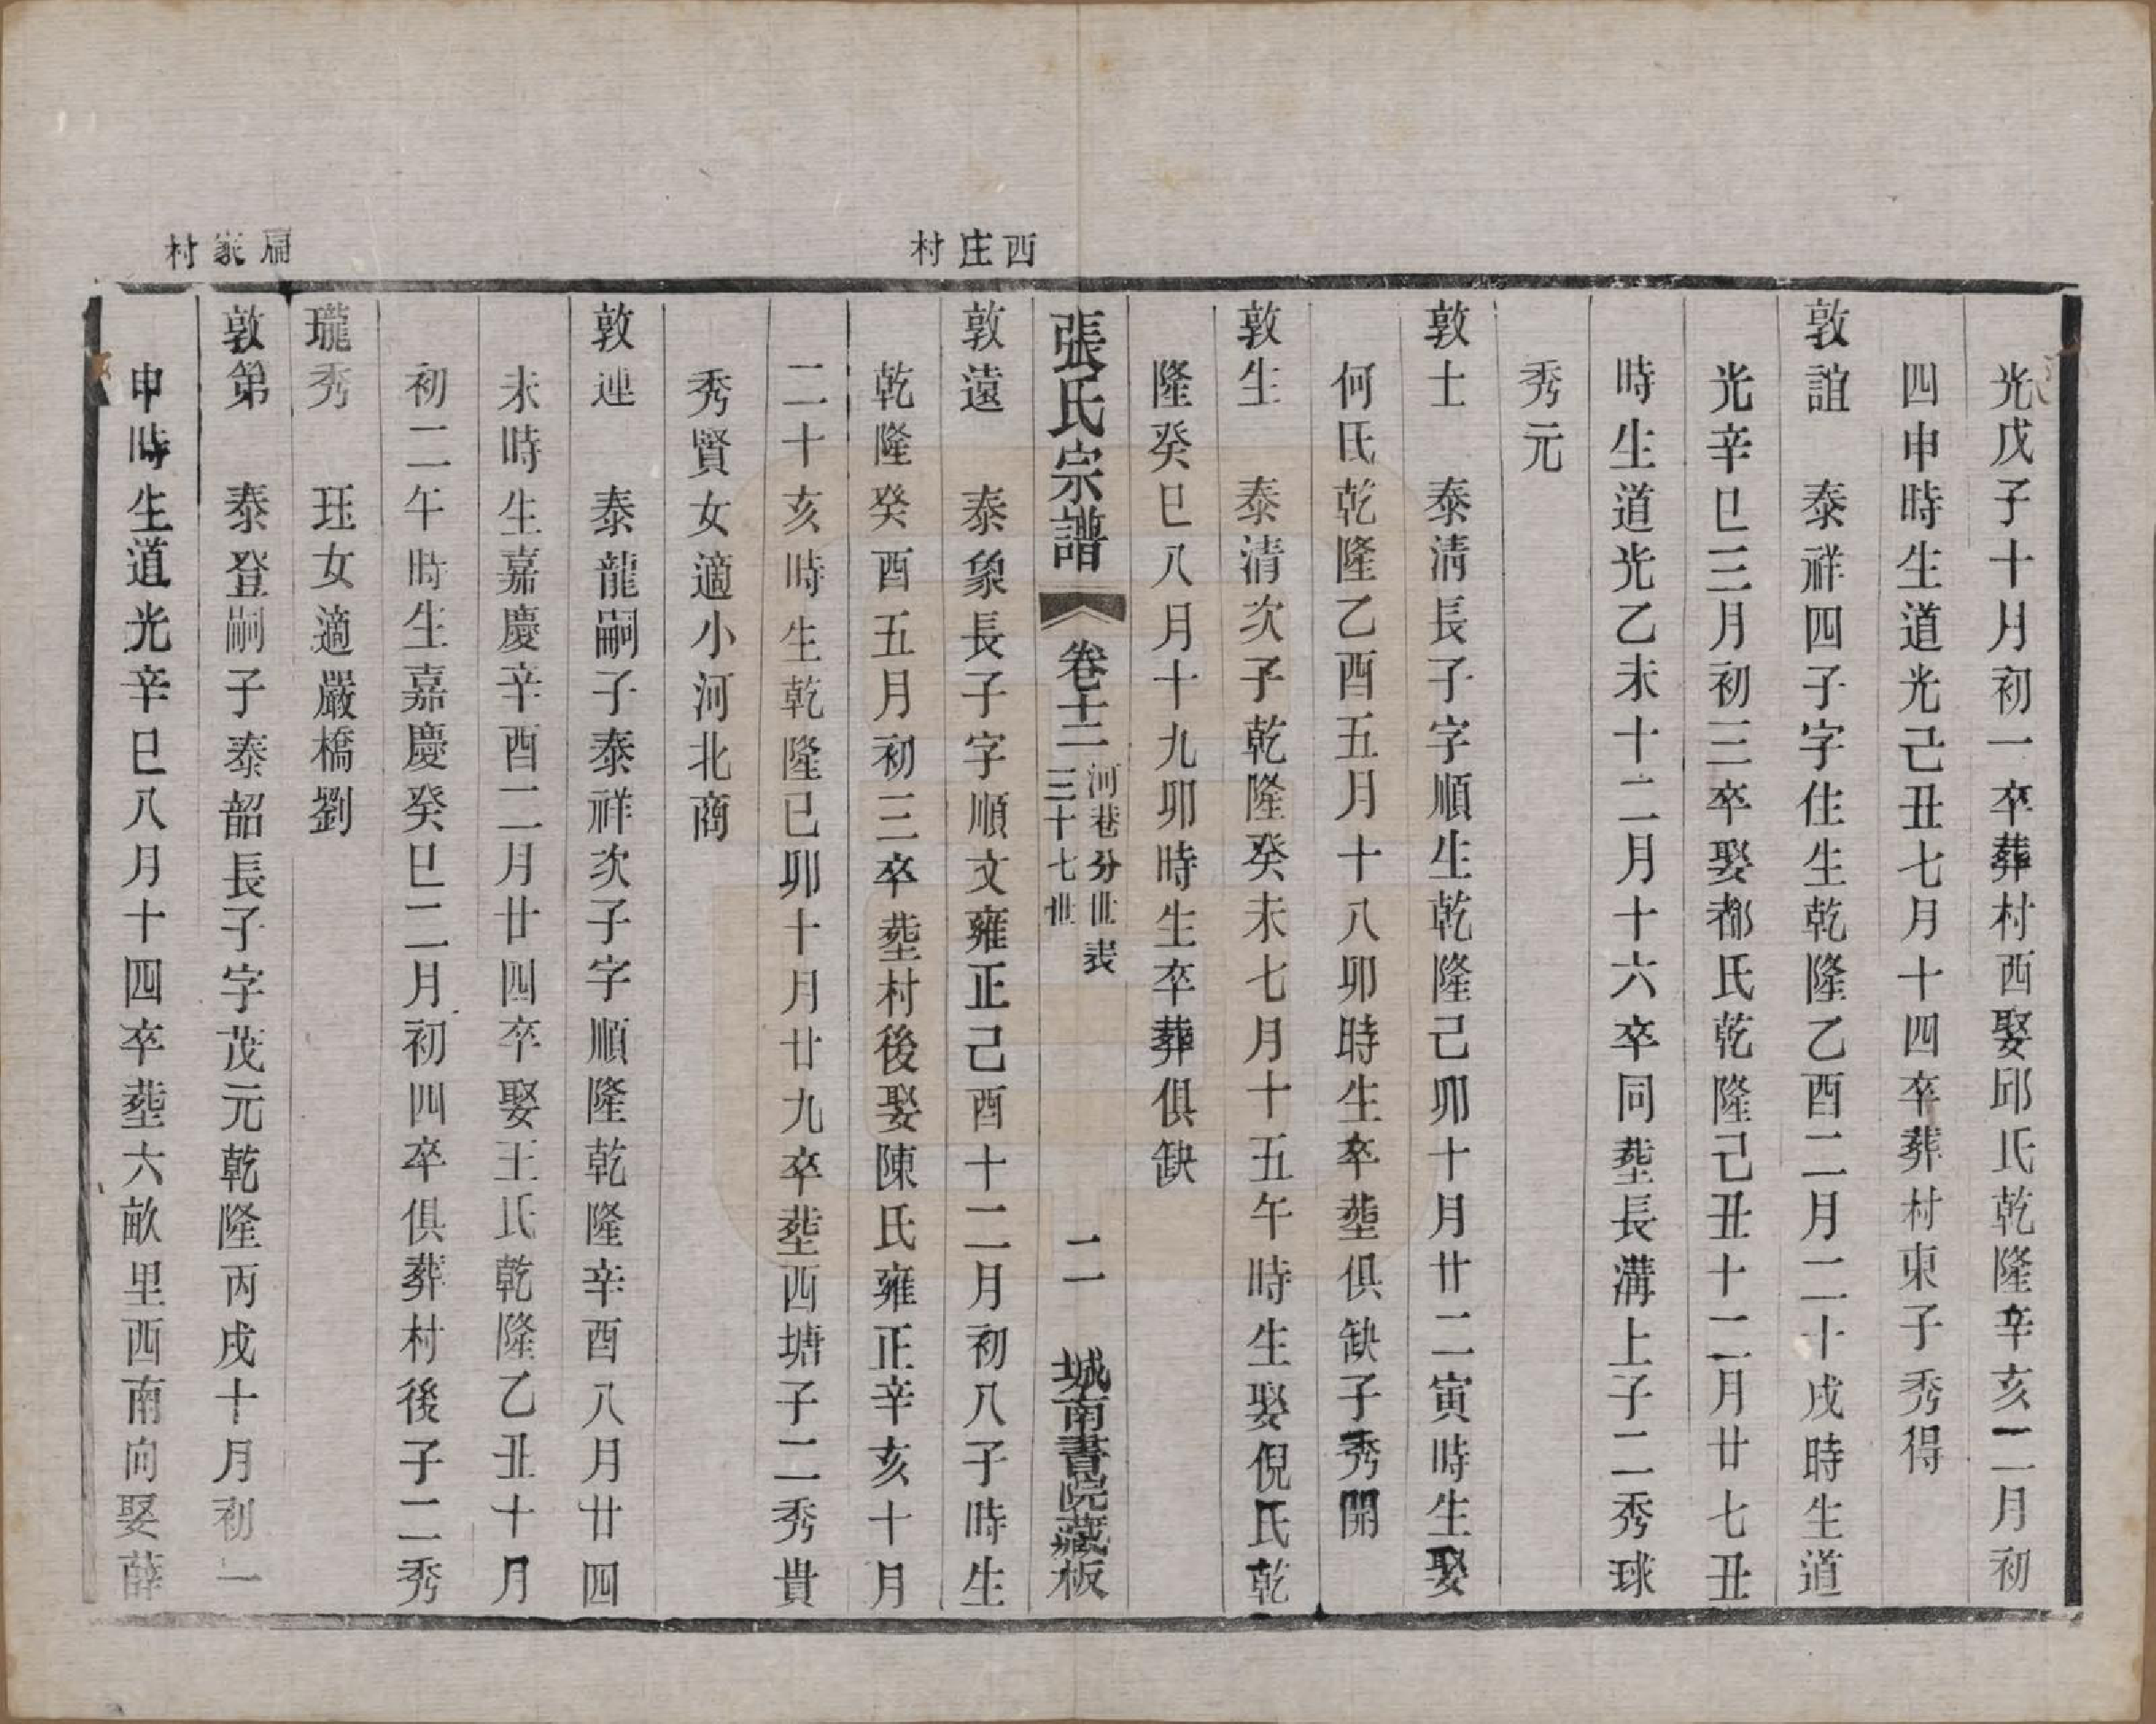 光戊子十月初一卒葬村西娶邱氏乾隆辛亥二月初
四申時生道光己丑七月十四卒葬村東子秀得
敦誼 泰祥四子字住生乾隆乙酉二月二十戌時生道
光辛巳三月初三卒娶都氏乾隆己丑十二月廿七丑
時生道光乙未十二月十六卒同塟長溝上子二秀球
秀元
敦士 泰清長子字順生乾隆己卯十月廿二寅時生娶
何氏乾隆乙酉五月十八卯時生卒塟俱缺子秀開
敦生 泰清次子乾隆癸未七月十五午時生娶倪氏乾
隆癸巳八月十九卯時生卒葬俱缺
張氏宗譜 卷十二 河巷分世表 三十七世 二 城南書院藏板
西庄村
敦遠 泰象長子字順文雍正己酉十二月初八子時生
乾隆癸酉五月初三卒塟村後娶陳氏雍正辛亥十月
二十亥時生乾隆己卯十月廿九卒塟西塘子二秀貴
秀賢女適小河北商
敦連 泰龍嗣子泰祥次子字順隆乾隆辛酉八月廿四
未時生嘉慶辛酉二月廿四卒娶王氏乾隆乙丑十月
初二午時生嘉慶癸巳二月初四卒俱葬村後子二秀
瓏秀珏女適嚴橋劉
家村
敦第 泰登嗣子泰韶長子字茂元乾隆丙戌十月初一
申時生道光辛巳八月十四卒塟六畝里西南向娶薛